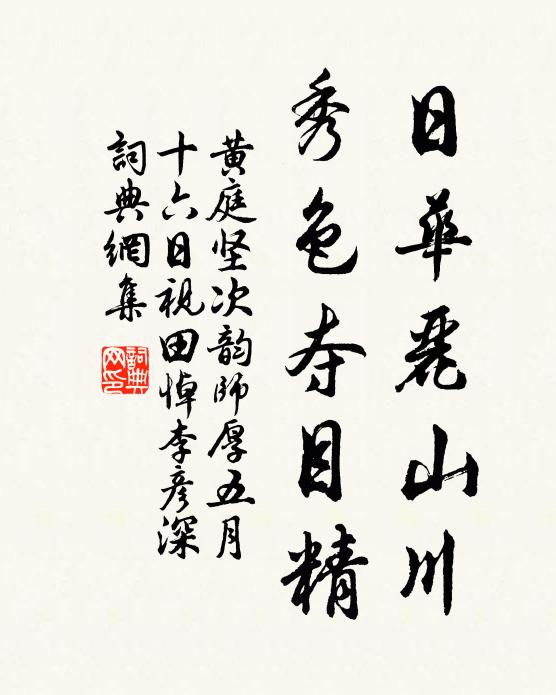 日華麗山川
秀色夺目精
黄庭坚次韵師厚五月
十六日視田悼李彦深
詞典網集
詞典
网印